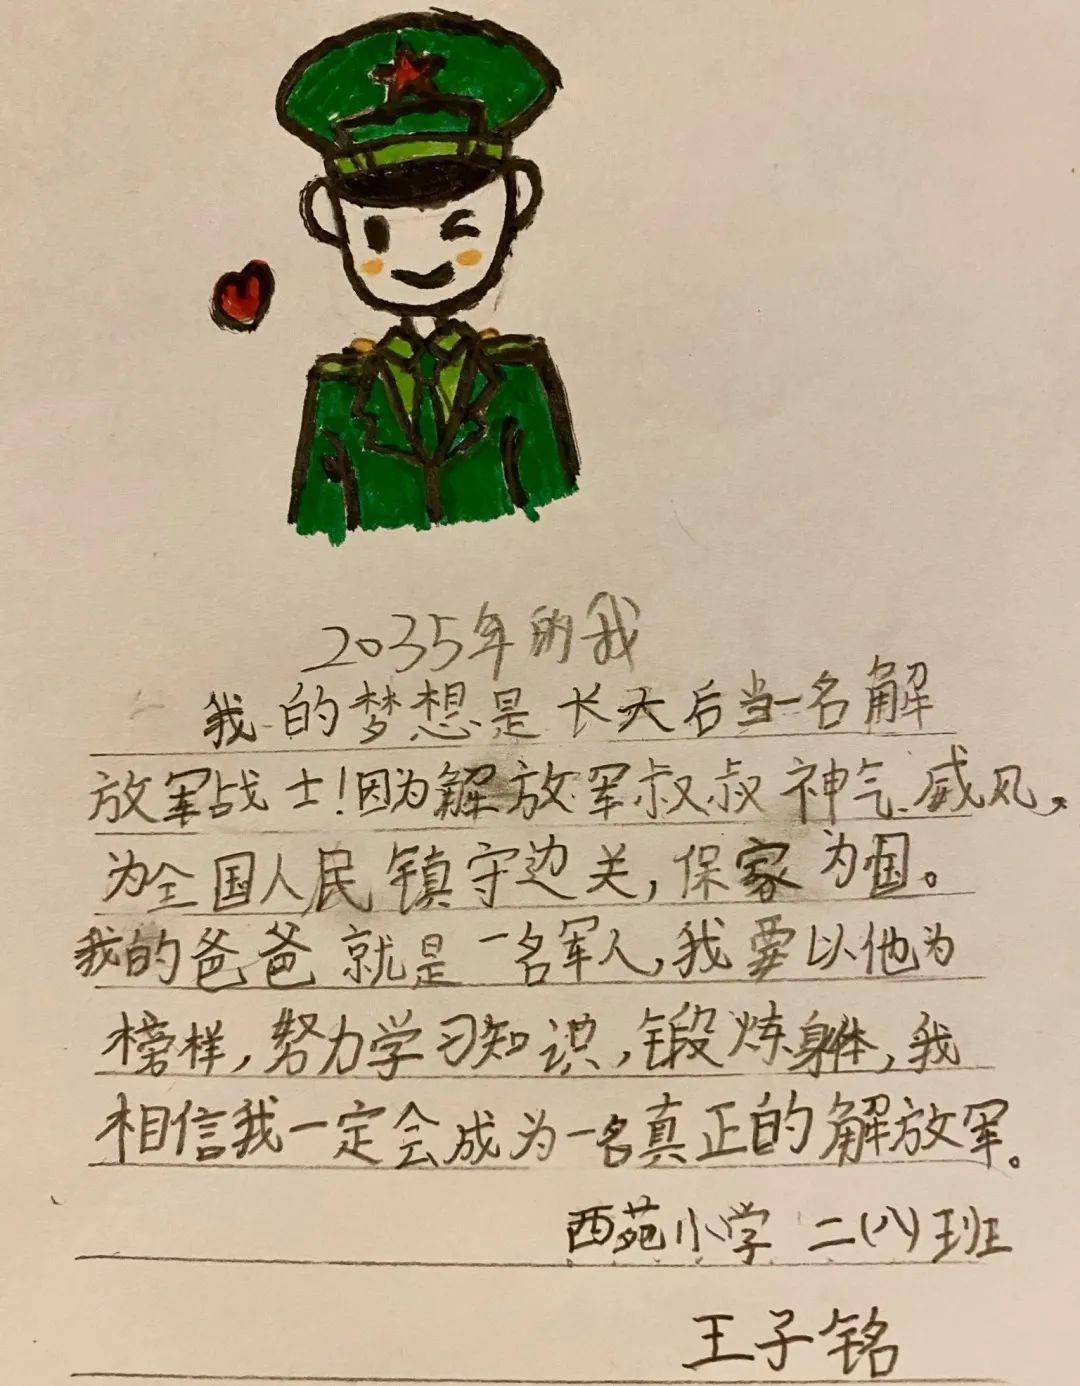 2035年的我
我的梦想是长大后当一名解
放军战士！因为解放军叔叔神气、威风，
为全国人民镇守边关，保家为国。
我的爸爸就是一名军人，我要以他为
榜样，努力学习知识，锻炼身体，我
相信我一定会成为一名真正的解放军。
西苑小学 二(八)班
王子铭